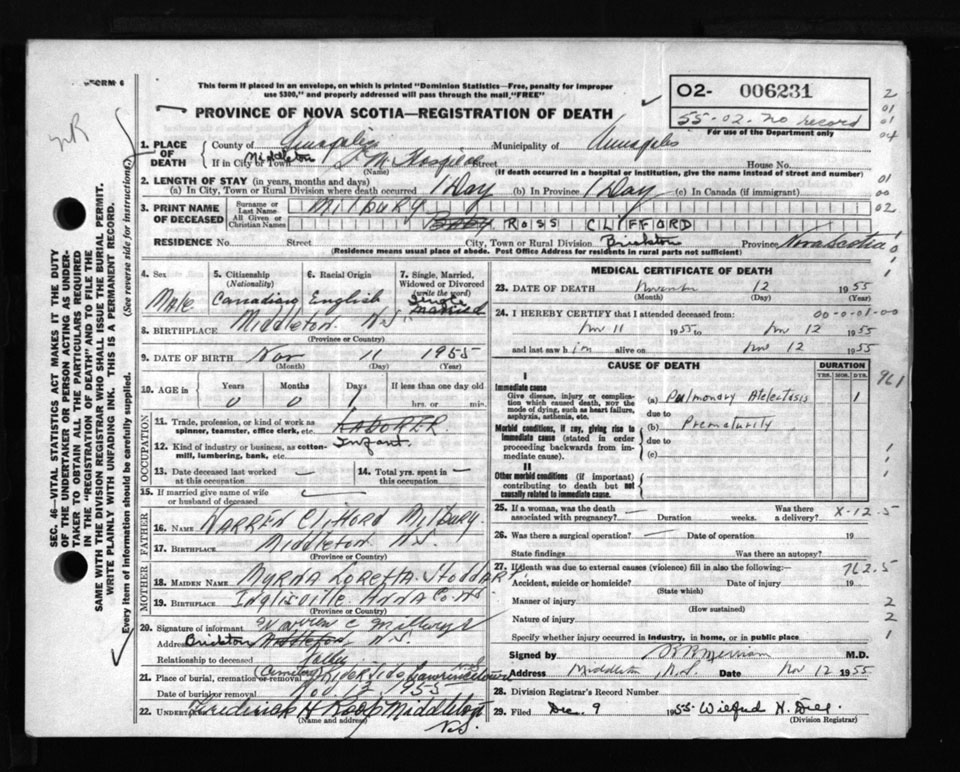 FORM 6
This form if placed in an envelope, on which is printed "Dominion Statistics—Free, penalty for improper
use $300," and properly addressed will pass through the mail, "FREE"
PROVINCE OF NOVA SCOTIA—REGISTRATION OF DEATH
O2- 006231
55-02. no record
For use of the Department only
1. PLACE OF DEATH
County of Annapolis Municipality of Annapolis
If in City or Town Middleton S. M. Hospital Street House No.
(Name) (If death occurred in a hospital or institution, give the name instead of street and number)
2. LENGTH OF STAY (in years, months and days)
(a) In City, Town or Rural Division where death occurred 1 Day (b) In Province 1 Day (c) In Canada (if immigrant)
3. PRINT NAME OF DECEASED
Surname or Last Name MILBURY
All Given or Christian Names Baby ROSS CLIFFORD
RESIDENCE No. Street City, Town or Rural Division Brickton Province Nova Scotia
(Residence means usual place of abode. Post Office Address for residents in rural parts not sufficient)
4. Sex
Male
5. Citizenship
(Nationality)
Canadian
6. Racial Origin
English
7. Single, Married, Widowed or Divorced
(write the word)
Single
married
8. BIRTHPLACE Middleton N.S.
(Province or Country)
9. DATE OF BIRTH Nov 11 1955
(Month) (Day) (Year)
10. AGE in
Years Months Days If less than one day old
0 0 1 hrs. or min.
OCCUPATION
11. Trade, profession, or kind of work as
spinner, teamster, office clerk, etc. LABORER
12. Kind of industry or business, as cotton-
mill, lumbering, bank, etc. Infant.
13. Date deceased last worked
at this occupation —
14. Total yrs. spent in
this occupation —
15. If married give name of wife
or husband of deceased —
FATHER
16. NAME WARREN Clifford Milbury
17. BIRTHPLACE Middleton N.S.
(Province or Country)
MOTHER
18. MAIDEN NAME Myrna Loretta Stoddart
19. BIRTHPLACE Inglisville Anna Co NS
(Province or Country)
20. Signature of informant Warren C Milbury
Address Brickton N.S.
Relationship to deceased Father
21. Place of burial, cremation or removal (Cemetery) Riverside Lawrencetown N.S.
Date of burial or removal Nov 12 1955
22. UNDERTAKER Frederick H Roop Middleton
(Name and address) N.S.
MEDICAL CERTIFICATE OF DEATH
23. DATE OF DEATH November 12 1955
(Month) (Day) (Year)
24. I HEREBY CERTIFY that I attended deceased from: 00-0-01-00
Nov 11 1955 to Nov 12 1955
and last saw him alive on Nov 12 1955
CAUSE OF DEATH
DURATION
YRS. MOS. DYS.
I
Immediate cause
Give disease, injury or complication which caused death, NOT the mode of dying, such as heart failure, asphyxia, asthenia, etc.
(a) Pulmonary Atelectasis 1
due to
Morbid conditions, if any, giving rise to immediate cause (stated in order proceeding backwards from immediate cause).
(b) Prematurity
due to
(c)
II
Other morbid conditions (if important) contributing to death but not causally related to immediate cause.
25. If a woman, was the death
associated with pregnancy? — Duration weeks. Was there a delivery? X-12.5
26. Was there a surgical operation? — Date of operation 19
State findings Was there an autopsy?
27. If death was due to external causes (violence) fill in also the following:— 762.5
Accident, suicide or homicide? Date of injury 19
(State which)
Manner of injury
(How sustained)
Nature of injury
Specify whether injury occurred in industry, in home, or in public place
Signed by M.D.
Address Middleton, N.S. Date Nov 12 1955
28. Division Registrar's Record Number
29. Filed Dec. 9 1955
(Division Registrar)
SEC. 46—VITAL STATISTICS ACT MAKES IT THE DUTY
OF THE UNDERTAKER OR PERSON ACTING AS UNDER-
TAKER TO OBTAIN ALL THE PARTICULARS REQUIRED
IN THE "REGISTRATION OF DEATH" AND TO FILE THE
SAME WITH THE DIVISION REGISTRAR WHO SHALL ISSUE THE BURIAL PERMIT.
WRITE PLAINLY WITH UNFADING INK. THIS IS A PERMANENT RECORD.
Every item of information should be carefully supplied. (See reverse side for instructions.)
2
01
01
04
01
00
02
961
2
2
1